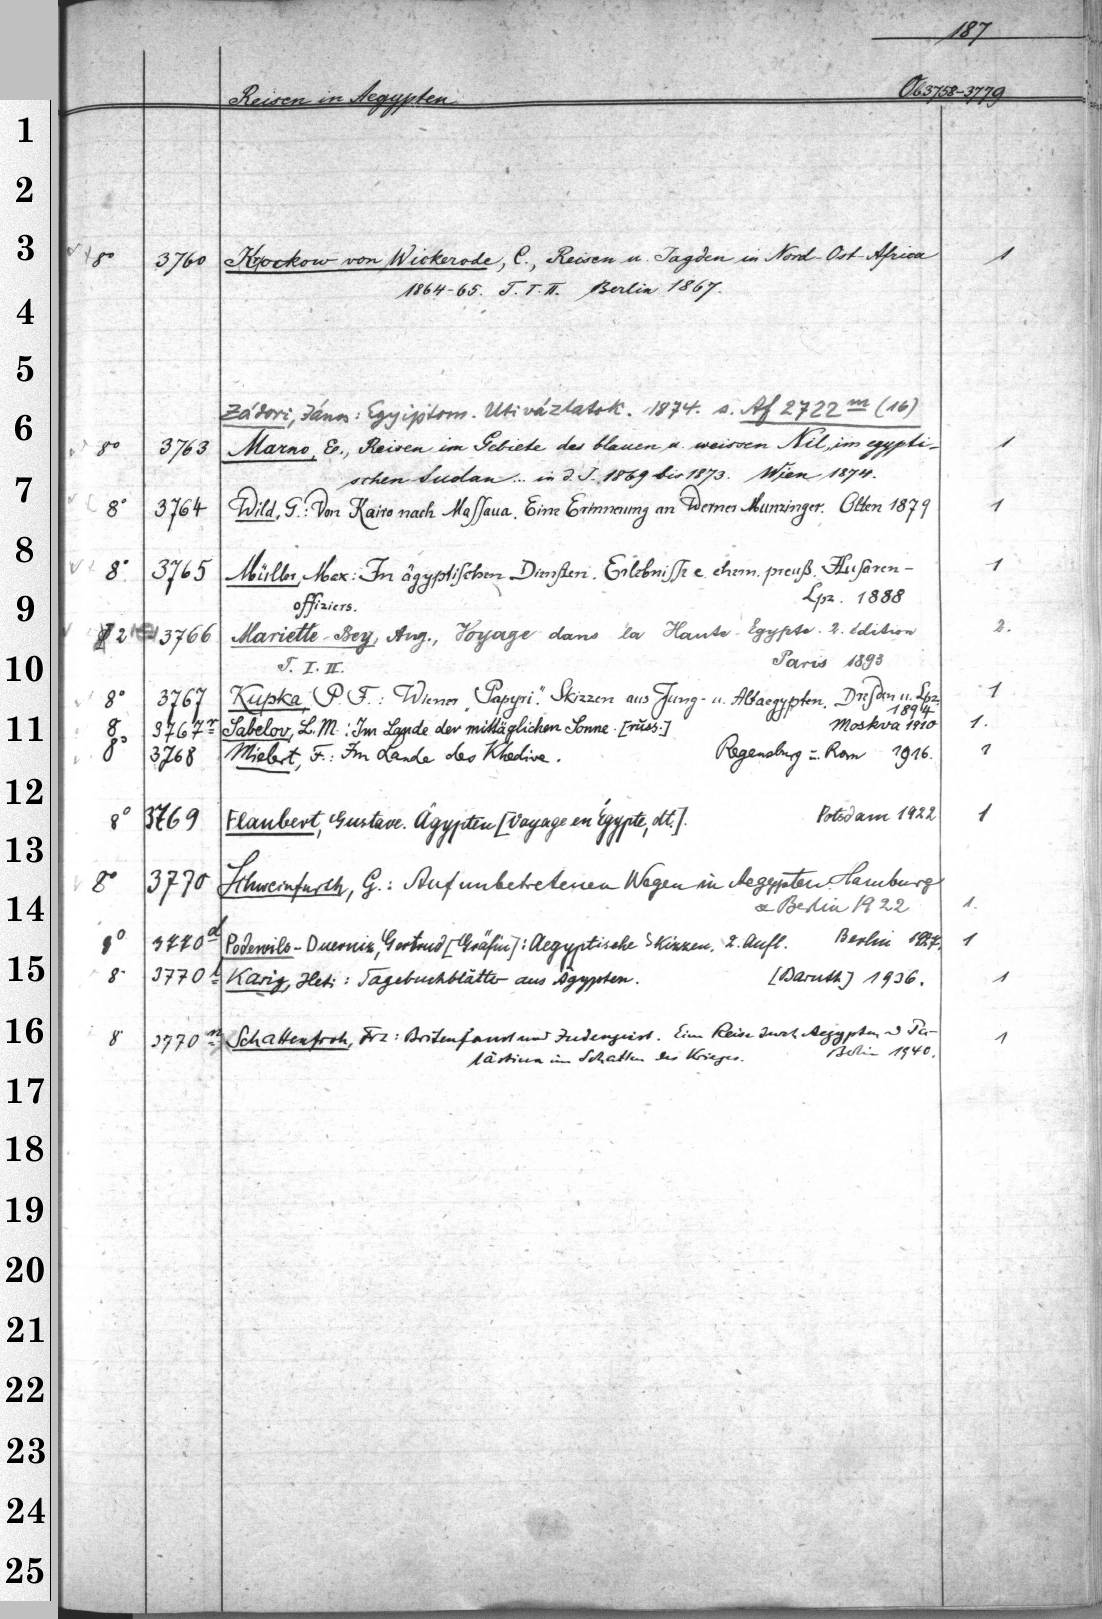 187
Reisen in Aegypten Ob 3758-3779
1
2
3
8° 3760 Krockow von Wickerode, C., Reisen u. Jagden in Nord-Ost-Africa 1
1864-65. T. I. II. Berlin 1867.
4
5
Zádori, János: Egyiptom. Uti vázlatok. 1874. s. Af 2722 m (16)
6
8° 3763 Marno, E., Reisen im Gebiete des blauen u. weissen Nil, im egypti- 1
schen Sudan... in d. J. 1869 bis 1873. Wien 1874.
7
8° 3764 Wild, G.: Von Kairo nach Massaua. Eine Erinnerung an Werner Munzinger. Olten 1879 1
8
8° 3765 Müller, Max: In ägyptischen Diensten. Erlebnisse e. ehem. preuß. Husaren- 1
offiziers. Lpz. 1888
9
2° 3766 Mariette-Bey, Aug., Voyage dans la Haute-Egypte. 2. édition 2.
T. I. II. Paris 1893
10
8° 3767 Kupka, P. F.: Wiener „Papyri". Skizzen aus Jung- u. Altaegypten. Dresden u. Lpz. 1
1894
11
8. 3767 r Sabelov, L. M.: Im Lande der mittäglichen Sonne. [russ.] Moskva 1910 1.
8° 3768 Mielert, F.: Im Lande des Khedive. Regensburg u. Rom 1916. 1
12
8° 3769 Flaubert, Gustave. Ägypten [Voyage en Égypte, dt.]. Potsdam 1922 1
13
8° 3770 Schweinfurth, G.: Auf unbetretenen Wegen in Aegypten. Hamburg
14
& Berlin 1922 1.
8° 3770 d Podewils-Duerniz, Gertrud [Gräfin]: Aegyptische Skizzen. 2. Aufl. Berlin 1927. 1
15
8° 3770 Karig, Heti: Tagebuchblätter aus Ägypten. [Baruth] 1936. 1
16
8 3770 n Schattenfroh, Frz: Britenfaust und Judengeist. Eine Reise durch Aegypten u Pa- 1
lästina im Schatten des Krieges. Berlin 1940.
17
18
19
20
21
22
23
24
25